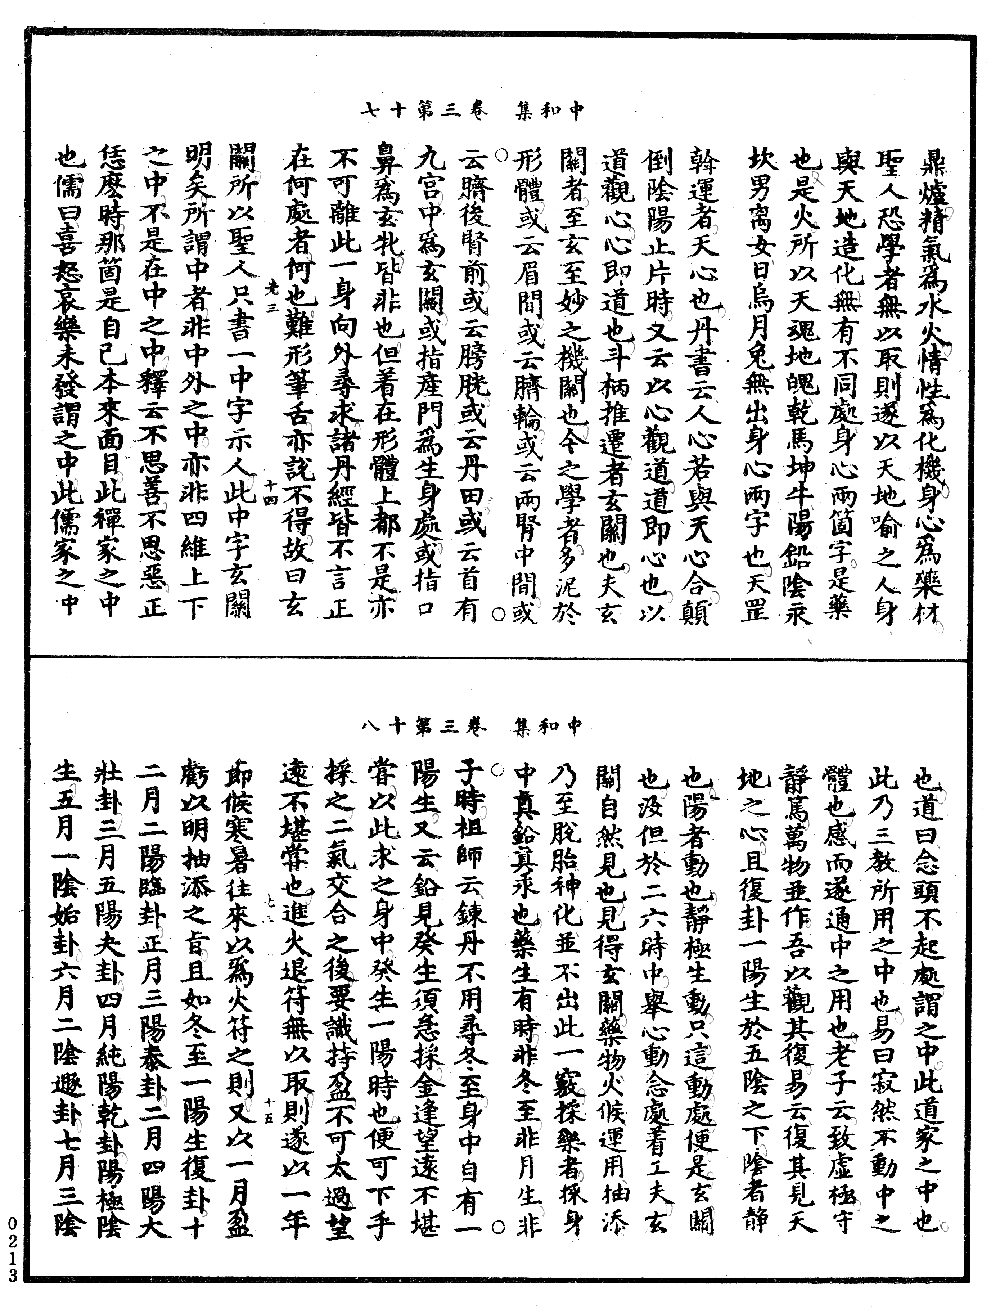 中和集　卷三第十七
鼎爐精氣爲水火情性爲化機身心爲藥材
聖人恐學者無以取則遂以天地喻之人身
與天地造化無有不同處身心兩箇字是藥
也是火所以天魂地魄乾馬坤牛陽鉛陰汞
坎男离女日烏月兔無出身心兩字也天罡
斡運者天心也丹書云人心若與天心合顛
倒陰陽止片時又云以心觀道道即心也以
道觀心心即道也斗柄推遷者玄關也夫玄
關者至玄至妙之機關也今之學者多泥於
形體或云眉間或云臍輪或云兩腎中間或
云臍後腎前或云膀胱或云丹田或云首有
九宮中爲玄關或指產門爲生身處或指口
鼻爲玄牝皆非也但着在形體上都不是亦
不可離此一身向外尋求諸丹經皆不言正
在何處者何也難形筆舌亦說不得故曰玄
老三　十四
關所以聖人只書一中字示人此中字玄關
明矣所謂中者非中外之中亦非四維上下
之中不是在中之中釋云不思善不思惡正
恁麽時那箇是自己本來面目此禪家之中
也儒曰喜怒哀樂未發謂之中此儒家之中
中和集　卷三第十八
也道曰念頭不起處謂之中此道家之中也
此乃三教所用之中也易曰寂然不動中之
體也感而遂通中之用也老子云致虛極守
靜篤萬物並作吾以觀其復易云復其見天
地之心且復卦一陽生於五陰之下陰者靜
也陽者動也靜極生動只這動處便是玄關
也汝但於二六時中舉心動念處着工夫玄
關自然見也見得玄關藥物火候運用抽添
乃至脫胎神化並不出此一竅採藥者採身
中真鉛真汞也藥生有時非冬至非月生非
子時祖師云鍊丹不用尋冬至身中自有一
陽生又云鉛見癸生須急採金逢望遠不堪
嘗以此求之身中癸生一陽時也便可下手
採之二氣交合之後要識持盈不可太過望
遠不堪嘗也進火退符無以取則遂以一年
十五
節候寒暑往來以爲火符之則又以一月盈
虧以明抽添之旨且如冬至一陽生復卦十
二月二陽臨卦正月三陽泰卦二月四陽大
壯卦三月五陽夬卦四月純陽乾卦陽極陰
生五月一陰姤卦六月二陰遯卦七月三陰
0213